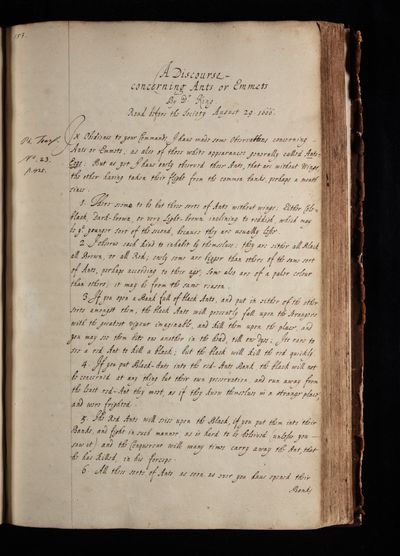 153.
A Discourse
concerning Ants or Emmets
By Dr King
Read before the Society August 29. 1666.
Ph. Trans.
No. 23.
p. 425.
In Obedience to your Commands, I have made some Observations concerning
Ants or Emmets; as also of those white appearances generally called Ants-
Eggs: But as yet I have only observed those Ants, that are without Wings
the other having taken their flight from the common banks, perhaps a month
since.
1. There seems to be but three sorts of Ants without wings: Either Cole-
black, Dark-brown, or very Light-brown inclining to reddish, which may
be ye younger sort of the second, because they are usually less.
2. I observe each kind to inhabit by themselves: they are either all Black
all Brown, or all Red; only some are bigger than others of the same sort
of Ants, perhaps according to their age; some also are of a paler colour
than others; it may be from the same reason.
3. If you open a Bank full of black Ants, and put in either of the other
sorts amongst them, the black Ants will presently fall upon the strangers
with the greatest vigour imaginable, and kill them upon the place, and
you may see them bite one another in the head, till one dyes: Its rare to
see a red Ant to kill a black; but the black will kill the red quickly.
4. If you put Black-Ants into the red-Ants Bank the black will not
be concerned at any thing but their own preservation and run away from
the least red-Ant they meet, as if they knew themselves in a stranger place,
and were frighted.
5. The Red Ants will seize upon the Black, if you put them into their
Banks, and fight in such manner, as is hard to be believed, unless you
saw it: and the Conquerour will many times carry away the Ant, that
he has killed, in his forceps.
6. All these sorts of Ants, as soon as ever you have opened their
Banks